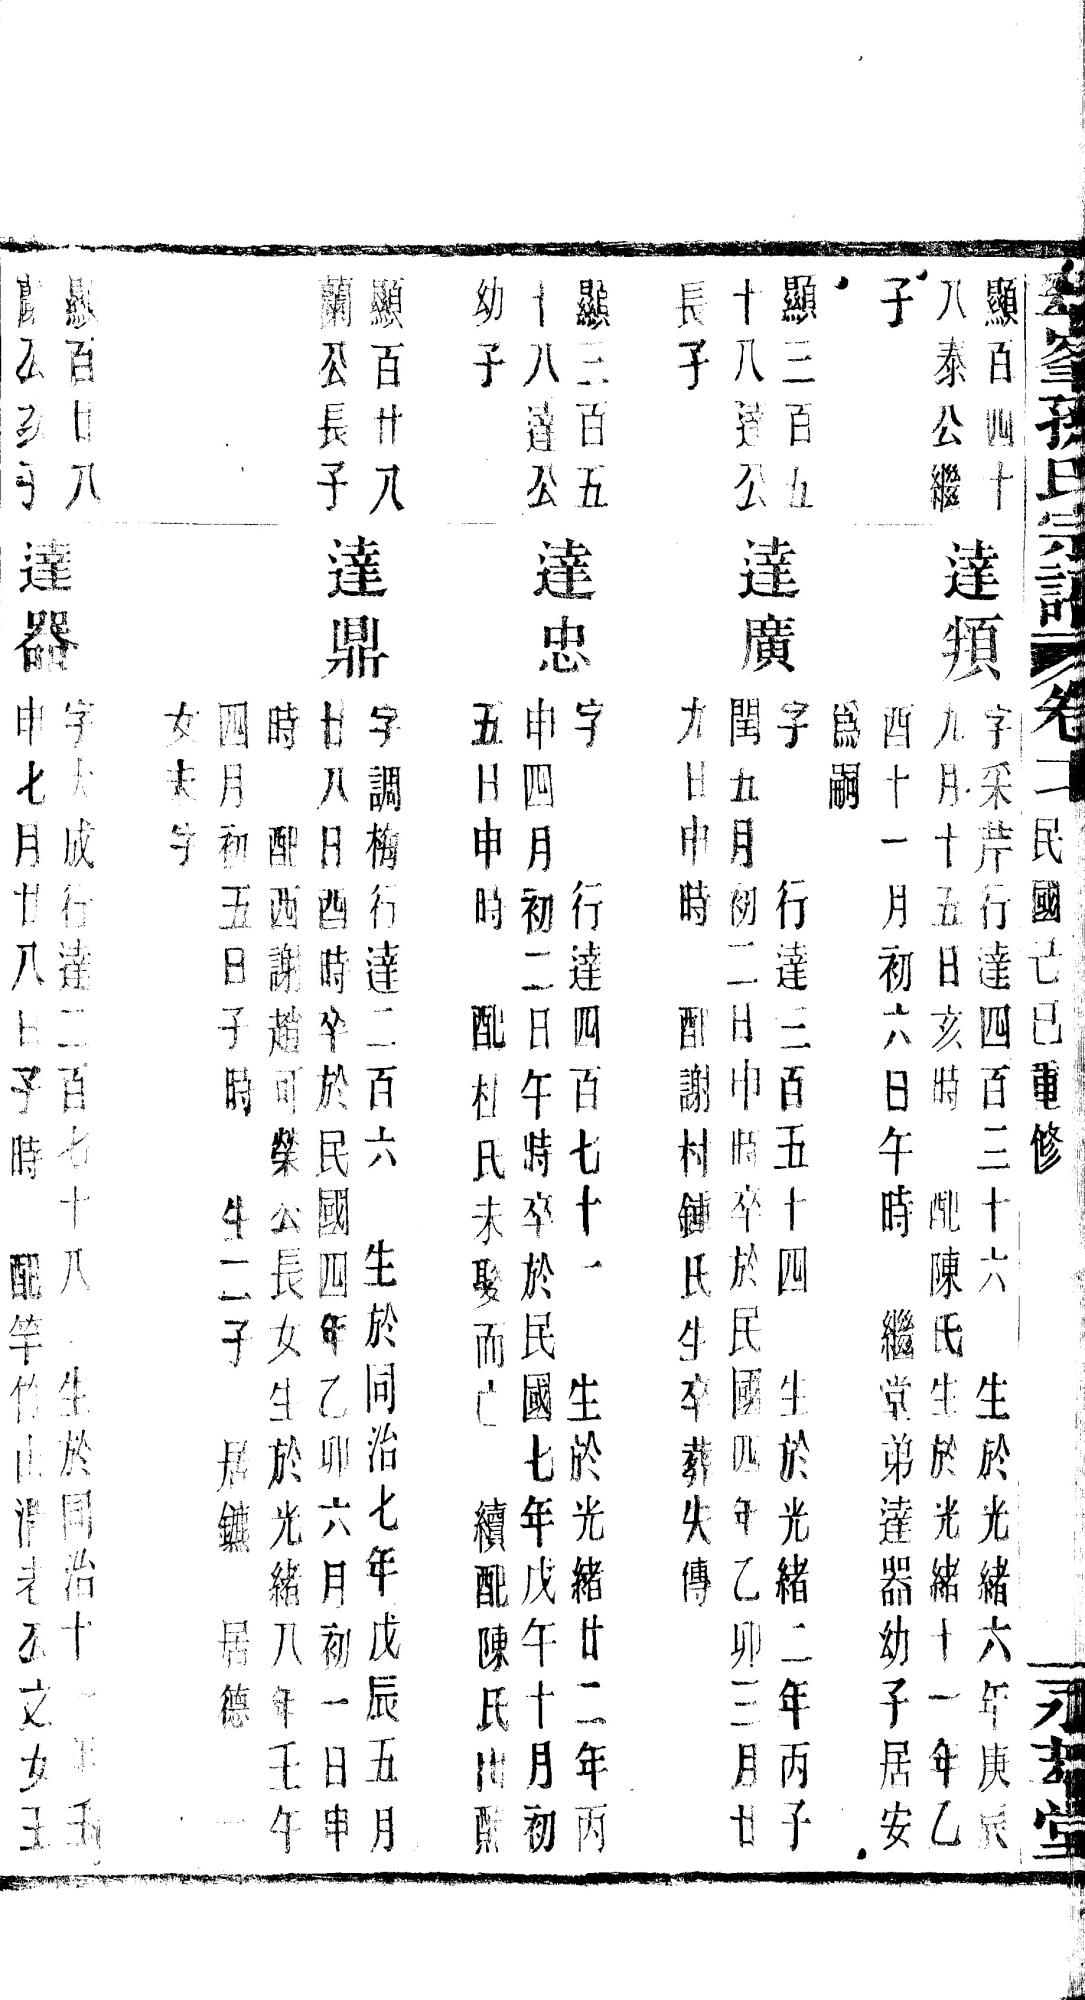 孫氏宗譜 卷二 民國己巳重修 堂
顯百四十
八泰公繼
子
達頫
字采芹行達四百三十六 生於光緒六年庚辰
九月十五日亥時 配陳氏生於光緒十一年乙
酉十一月初六日午時 繼堂弟達器幼子居安
爲嗣
顯三百五
十八達公
長子
達廣
字 行達三百五十四 生於光緒二年丙子
閏五月初二日申時卒於民國四年乙卯三月廿
九日申時 配謝村鍾氏生卒葬失傳
顯三百五
十八達公
幼子
達忠
字 行達四百七十一 生於光緒廿二年丙
申四月初二日午時卒於民國七年戊午十月初
五日申時 配杜氏未娶而亡 續配陳氏出醮
顯百廿八
蘭公長子
達鼎
字調梅行達二百六 生於同治七年戊辰五月
廿八日酉時卒於民國四年乙卯六月初一日申
時 配西謝趙可榮公長女生於光緒八年壬午
四月初五日子時 生二子 居鑣 居德 一
女未字
顯百廿八
蘭公次子
達器
字大成行達二百七十八 生於同治十一年壬
申七月廿八日子時 配竿竹山 老 公文女王